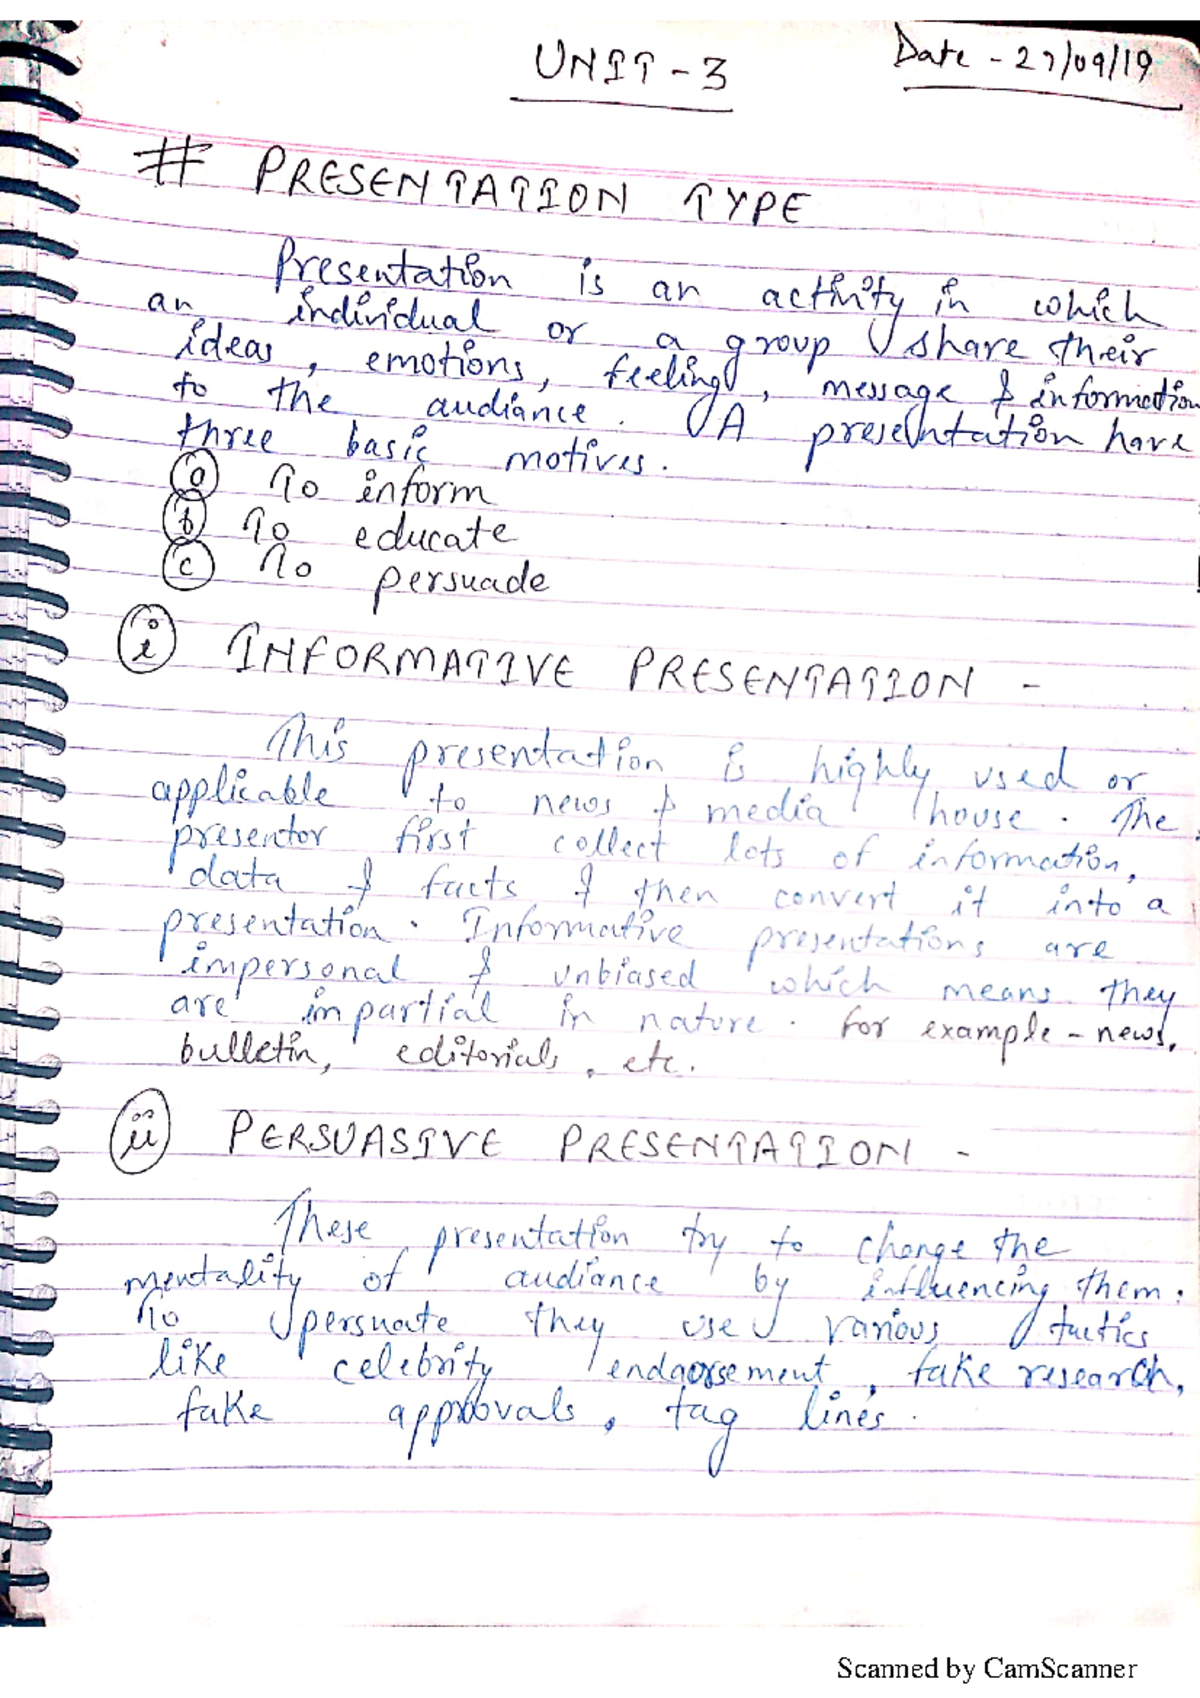 UNIT - 3
Date - 27/09/19
# PRESENTATION TYPE
Presentation is an activity in which
an individual or a group share their
ideas, emotions, feeling, message & information
to the audiance. A presentation have
three basic motives.
(a) To inform
(b) To educate
(c) To persuade
(i) INFORMATIVE PRESENTATION -
This presentation is highly used or
applicable to news & media house. The
presentor first collect lots of information,
data & facts & then convert it into a
presentation. Informative presentations are
impersonal & unbiased which means they
are impartial in nature. For example - news,
bulletin, editorials, etc.
(ii) PERSUASIVE PRESENTATION -
These presentation try to change the
mentality of audiance by influencing them.
To persuate they use various tactics
like celebrity endaorsement, fake research,
fake approvals, tag lines.
Scanned by CamScanner